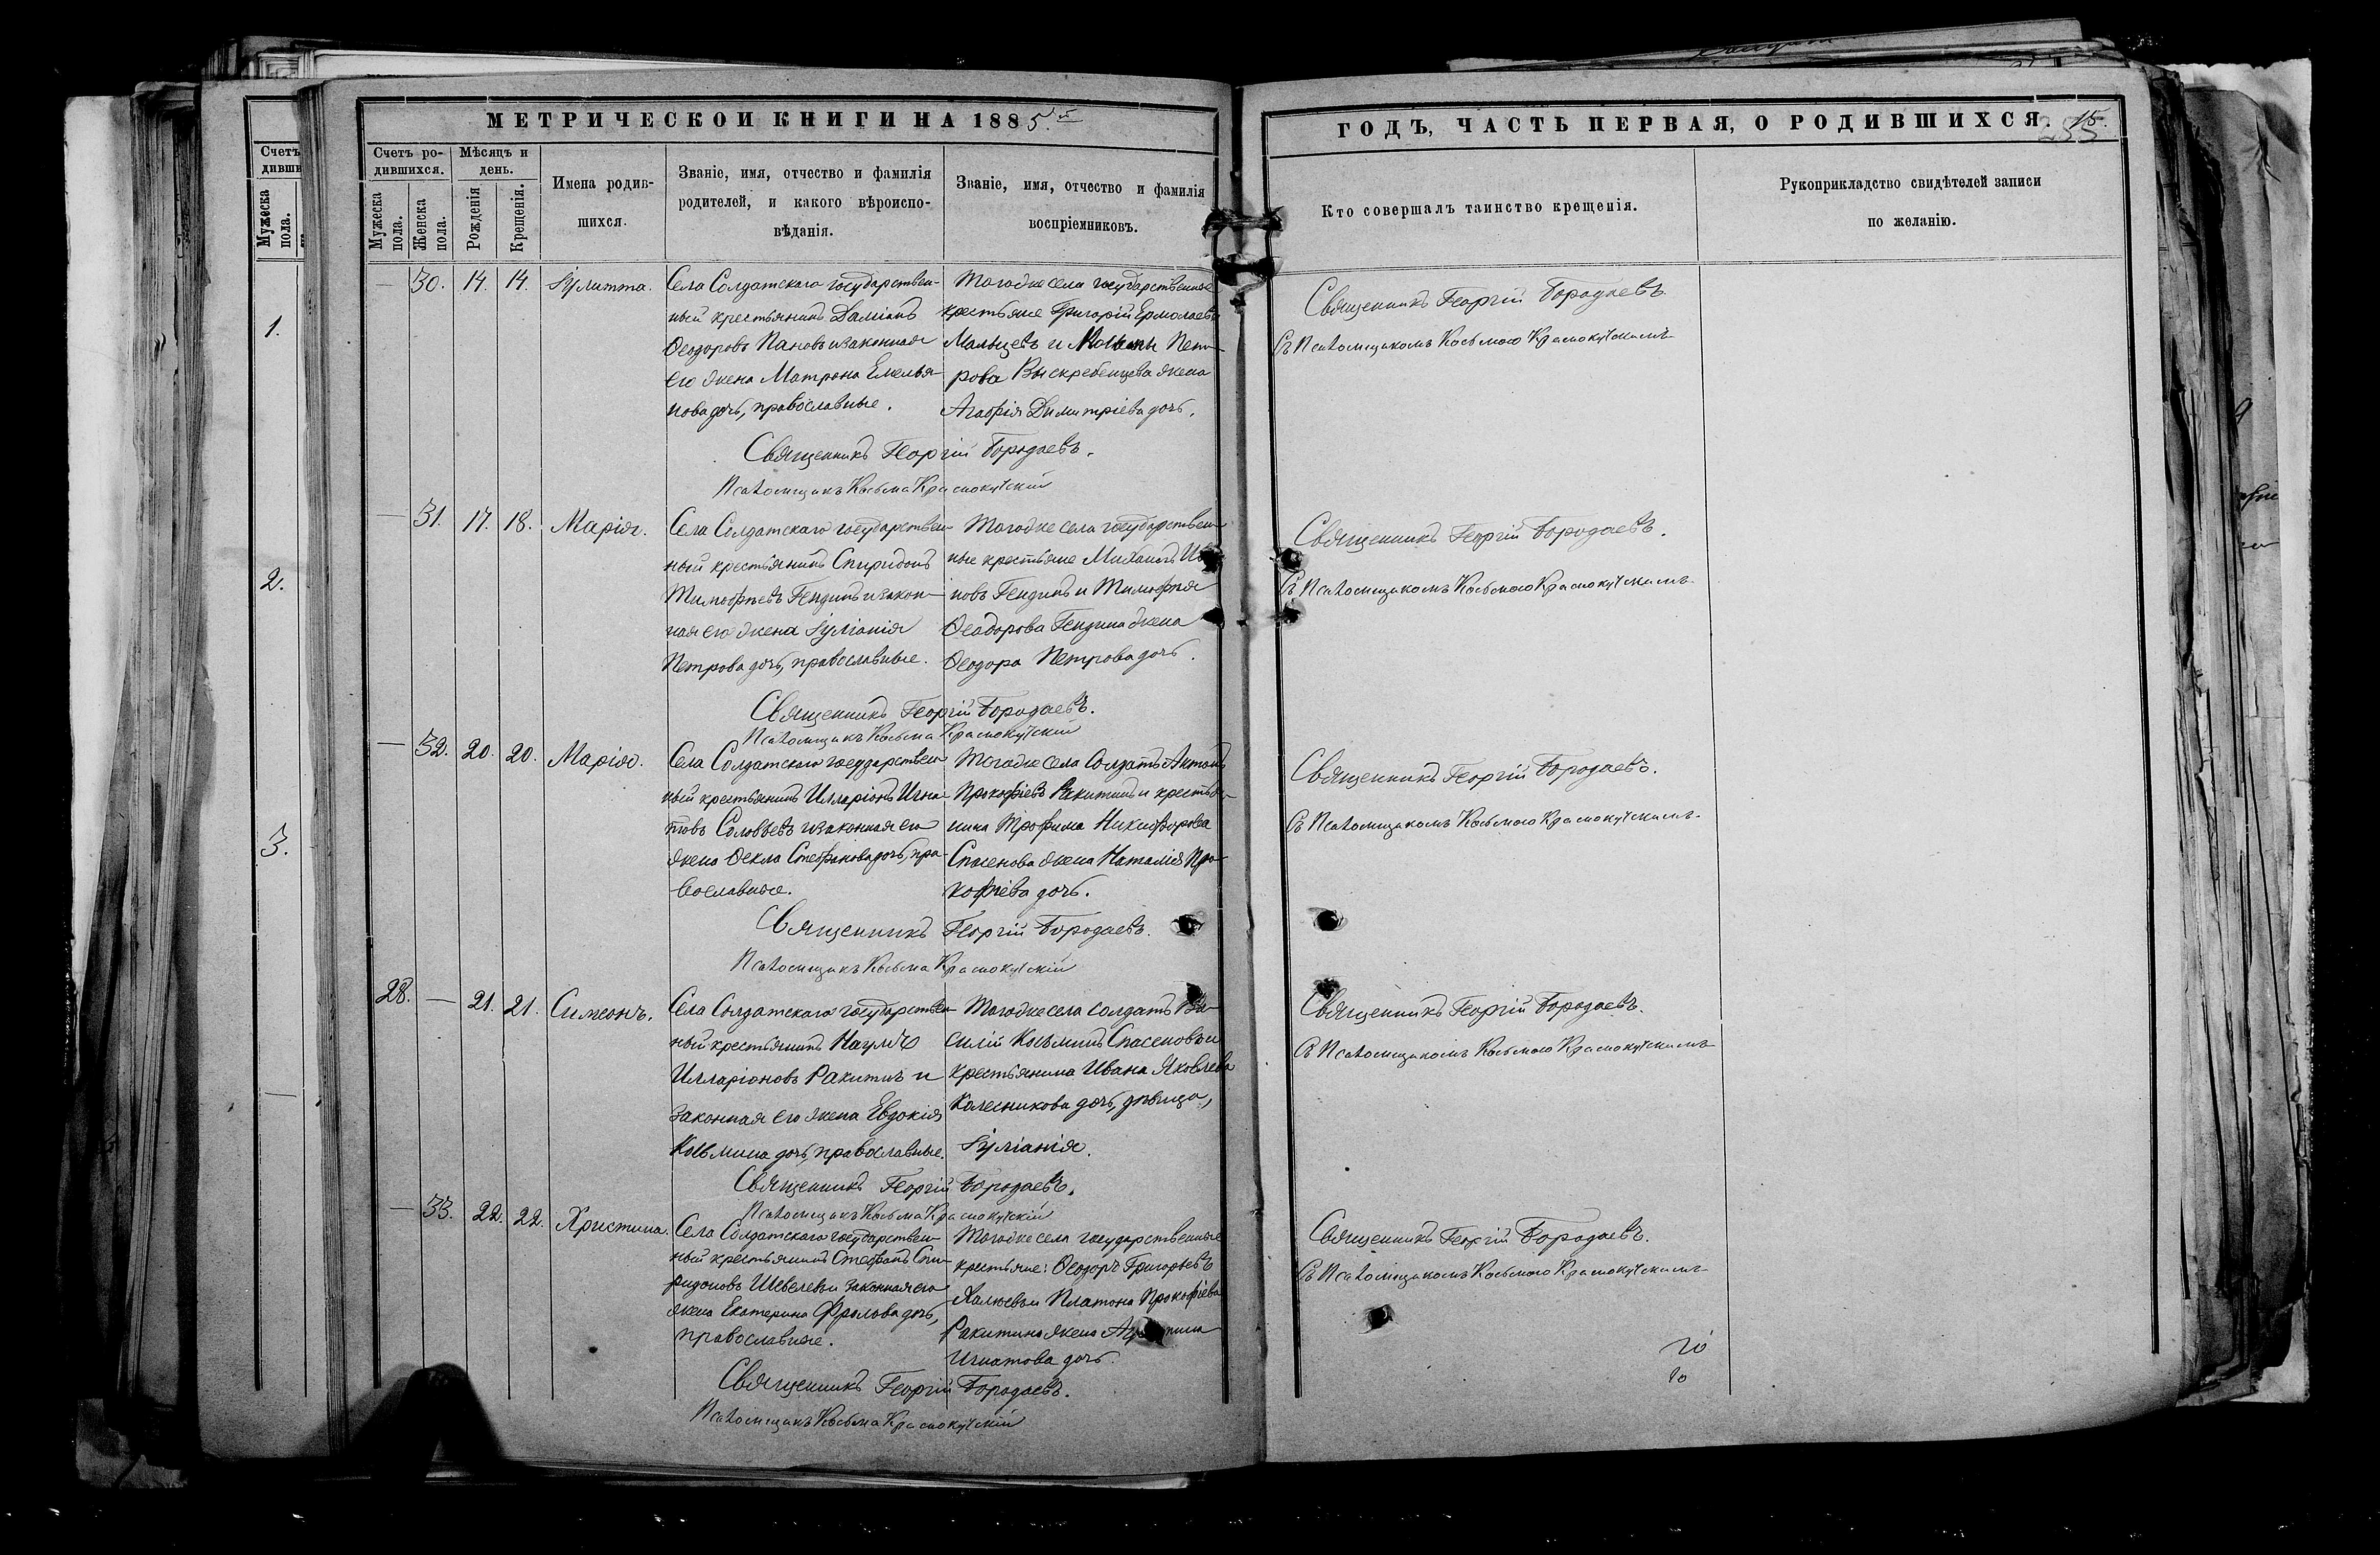 МЕТРИЧЕСКОЙ КНИГИ НА 1885й
Счетъ ро-
дившихся.
Мѣсяцъ и
день.
Мужеска
пола.
Женска
пола.
Рожденія
Крещенія.
Имена родив-
шихся.
Званіе, имя, отчество и фамилія
родителей, и какого вѣроиспо-
вѣданія.
Званіе, имя, отчество и фамилія
воспріемниковъ.
— 30. 14. 14. Іулитта.
Села Солдатскаго государствен-
ный крестьянинъ Даміанъ
Ѳеодоровъ Пановъ и законная
его жена Матрона Емелья-
нова дочь, православные.
Тогоже села государственные
крестьяне Григорій Ермолаевъ
Мальцевъ и Пет-
рова Выскребенцева жена
Агафія Димитріева дочь.
Священникъ Георгій Бородаевъ.
Псаломщикъ Косьма Краснокутскій
— 31. 17. 18. Марія.
Села Солдатскаго государствен-
ный крестьянинъ Спиридонъ
Тимофѣевъ Гендинъ и закон-
ная его жена Іуліанія
Петрова дочь, православные.
Тогоже села государствен-
ные крестьяне Михаилъ Ива-
новъ Гендинъ и Тимофея
Ѳеодорова Гендина жена
Ѳеодора Петрова дочь.
Священникъ Георгій Бородаевъ.
Псаломщикъ Косьма Краснокутскій
— 32. 20. 20. Марія.
Села Солдатскаго государствен-
ный крестьянинъ Илларіонъ Игна-
товъ Соловьевъ и законная его
жена Ѳекла Стефанова дочь, пра-
вославные.
Тогоже села Солдатъ Антонъ
Прокофіевъ Ракитинъ и крестья-
нина Трофима Никифорова
Спасенова жена Наталія Про-
кофіева дочь.
Священникъ Георгій Бородаевъ.
Псаломщикъ Косьма Краснокутскій
28. — 21. 21. Симеонъ.
Села Солдатскаго государствен-
ный крестьянинъ Наумъ
Илларіоновъ Ракитинъ и
законная его жена Евдокія
Косьмина дочь, православные.
Тогоже села солдатъ Ва-
силій Косьминъ Спасеновъ и
крестьянина Ивана Яковлева
Колесникова дочь, дѣвица,
Іуліанія.
Священникъ Георгій Бородаевъ.
Псаломщикъ Косьма Краснокутскій
— 33. 22. 22. Христина.
Села Солдатскаго государствен-
ный крестьянинъ Стефанъ Спи-
ридоновъ Шевелевъ и законная его
жена Екатерина Фролова дочь,
православные.
Тогоже села государственные
крестьяне: Ѳеодоръ Григорьевъ
и Платона Прокофіева
Ракитина жена
Игнатова дочь.
Священникъ Георгій Бородаевъ.
Псаломщикъ Косьма Краснокутскій
ГОДЪ, ЧАСТЬ ПЕРВАЯ, О РОДИВШИХСЯ. 15.
Кто совершалъ таинство крещенія.
Рукоприкладство свидѣтелей записи
по желанію.
Священникъ Георгій Бородаевъ
Съ Псаломщикомъ Косьмою Краснокутскимъ
Священникъ Георгій Бородаевъ.
Съ Псаломщикомъ Косьмою Краснокутскимъ
Священникъ Георгій Бородаевъ.
Съ Псаломщикомъ Косьмою Краснокутскимъ.
Священникъ Георгій Бородаевъ.
Съ Псаломщикомъ Косьмою Краснокутскимъ
Священникъ Георгій Бородаевъ.
Съ Псаломщикомъ Косьмою Краснокутскимъ
Счетъ
дивши
Мужеска
пола.
1.
2.
3.